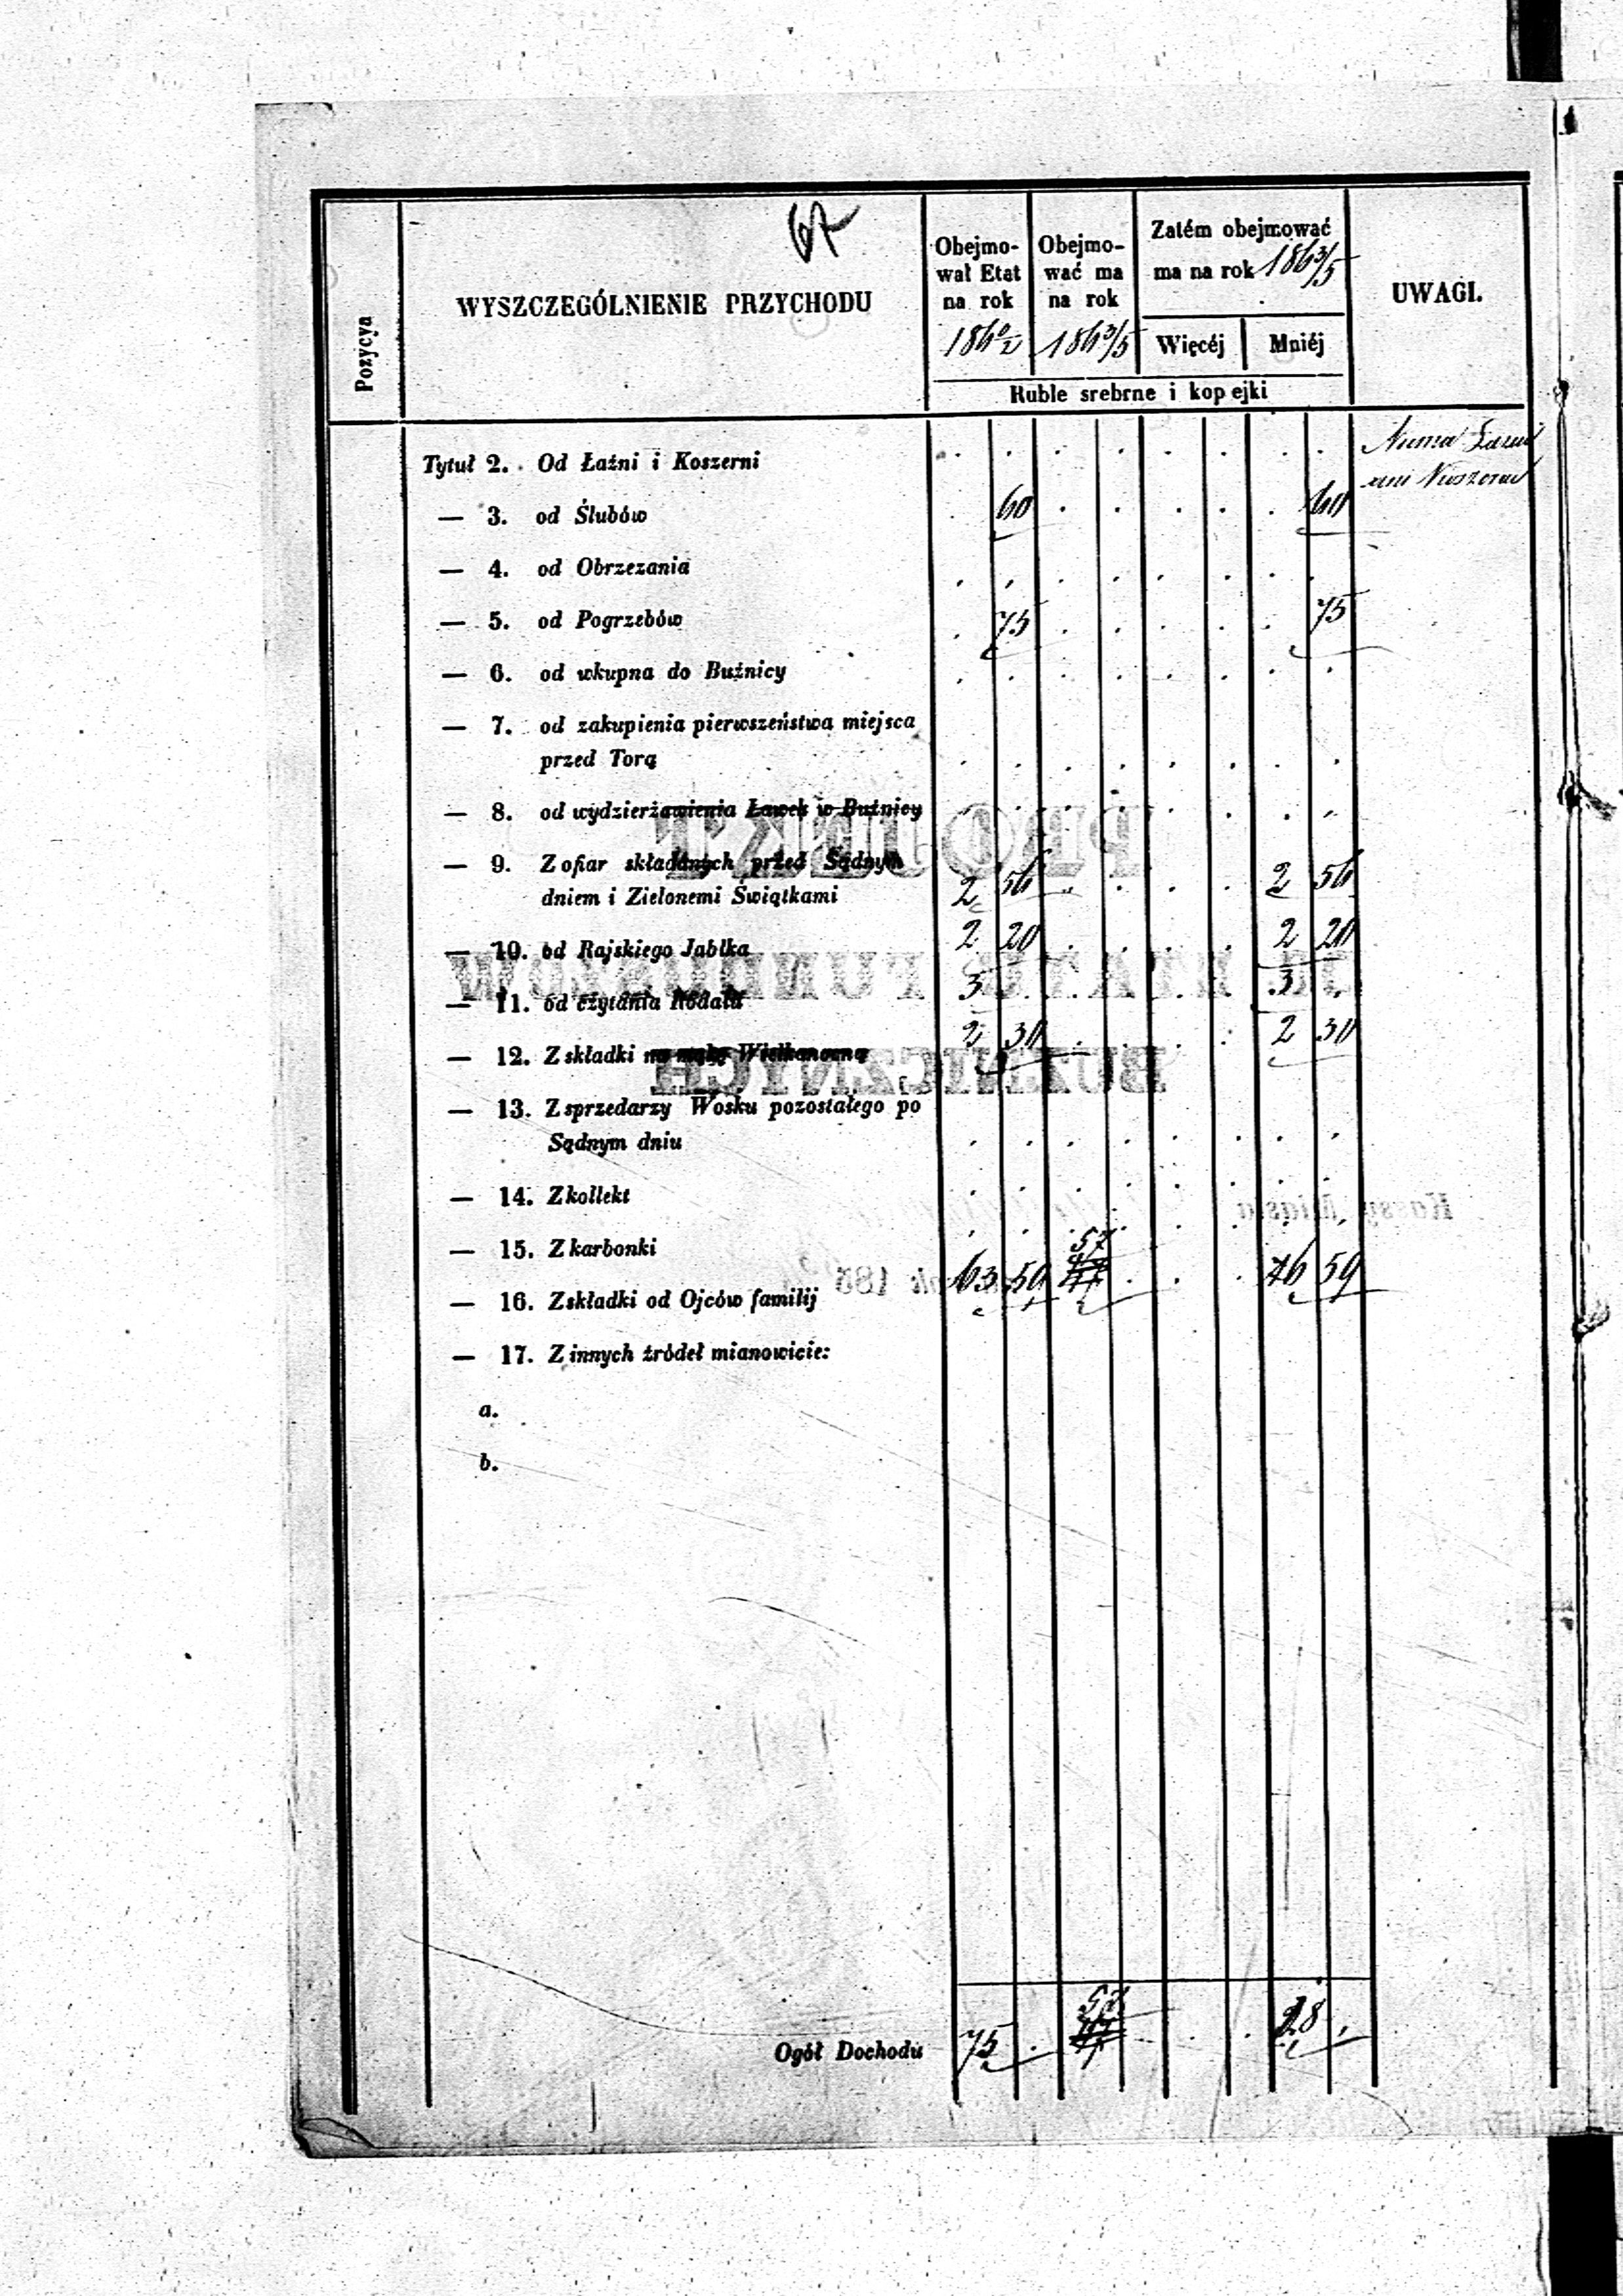 67
Pozycya
WYSZCZEGÓLNIENIE PRZYCHODU
Obejmo-
wał Etat
na rok
1860/2
Obejmo-
wać ma
na rok
1863/5
Zatém obejmować
ma na rok 1863/5
Więcéj Mniéj
UWAGI.
Ruble srebrne i kopejki
Tytuł 2. Od Łaźni i Koszerni . . . . . . . . Niema Łazni
ani Koszerni
— 3. od Ślubów . 60 . . . . . 60
— 4. od Obrzezania . . . . . . . .
— 5. od Pogrzebów . 75 . . . . . 75
— 6. od wkupna do Buźnicy . . . . . . . .
— 7. od zakupienia pierwszeństwa miejsca
przed Torą . . . . . . . .
— 8. od wydzierżawienia Ławek w Buźnicy . . . . . . . .
— 9. Z ofiar składanych przed Sądnym
dniem i Zielonemi Świątkami 2 56 . . . . 2 56
— 10. od Rajskiego Jabłka 2 20 . . . . 2 20
— 11. od czytania Rodału 3 . . . . . 3 .
— 12. Z składki na mąkę Wielkanocną 2 30 . . . . 2 30
— 13. Z sprzedarzy Wosku pozostałego po
Sądnym dniu . . . . . . . .
— 14. Z kollekt . . . . . . . .
— 15. Z karbonki . . . . . . . .
— 16. Z składki od Ojców familij 63 59 57 . . . 59
— 17. Z innych źródeł mianowicie:
a.
b.
Ogół Dochodu 75 . 57 . . 28 .
PROJEKT
FUNDUSZÓW
BUŹNICZNYCH
Kassy Miasta